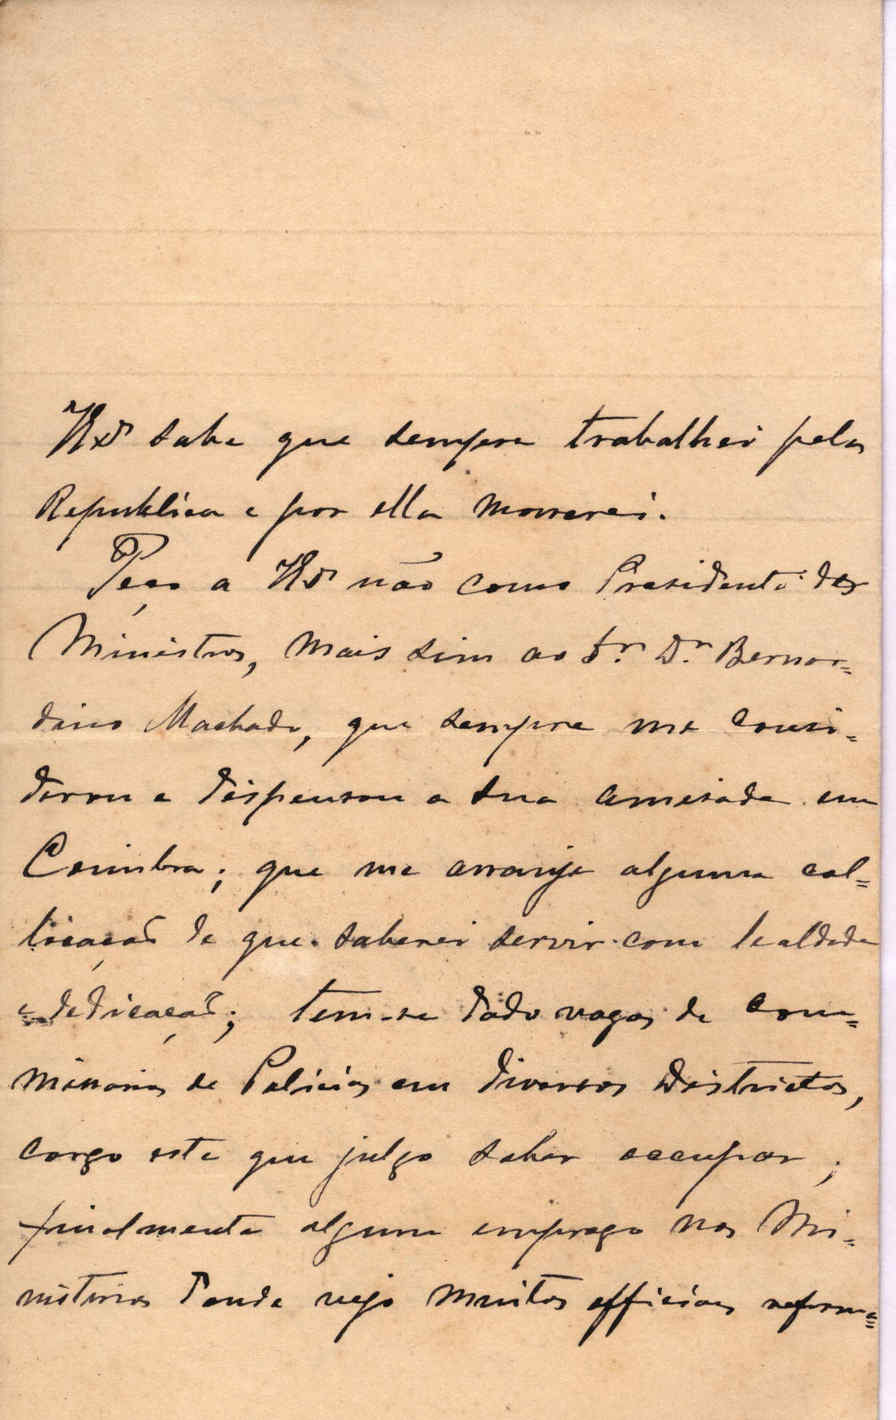 V. Exª sabe que sempre trabalhei pela
Republica e por ella morrerei.
Peço a V. Exª não como Presidente dos
Ministros, mais sim ao Sr. Dr. Bernar=
dino Machado, que sempre me consi=
derou e dispensou a sua amisade em
Coimbra; que me arranje alguma col=
locação de que saberei servir com lealdade
e dedicação; tem-se dado vagas de Com=
missarios de Policias em diversos Districtos,
cargo este que julgo saber occupar;
finalmente algum emprego nos Mi=
nisterios donde vejo muitos officiaes reform=